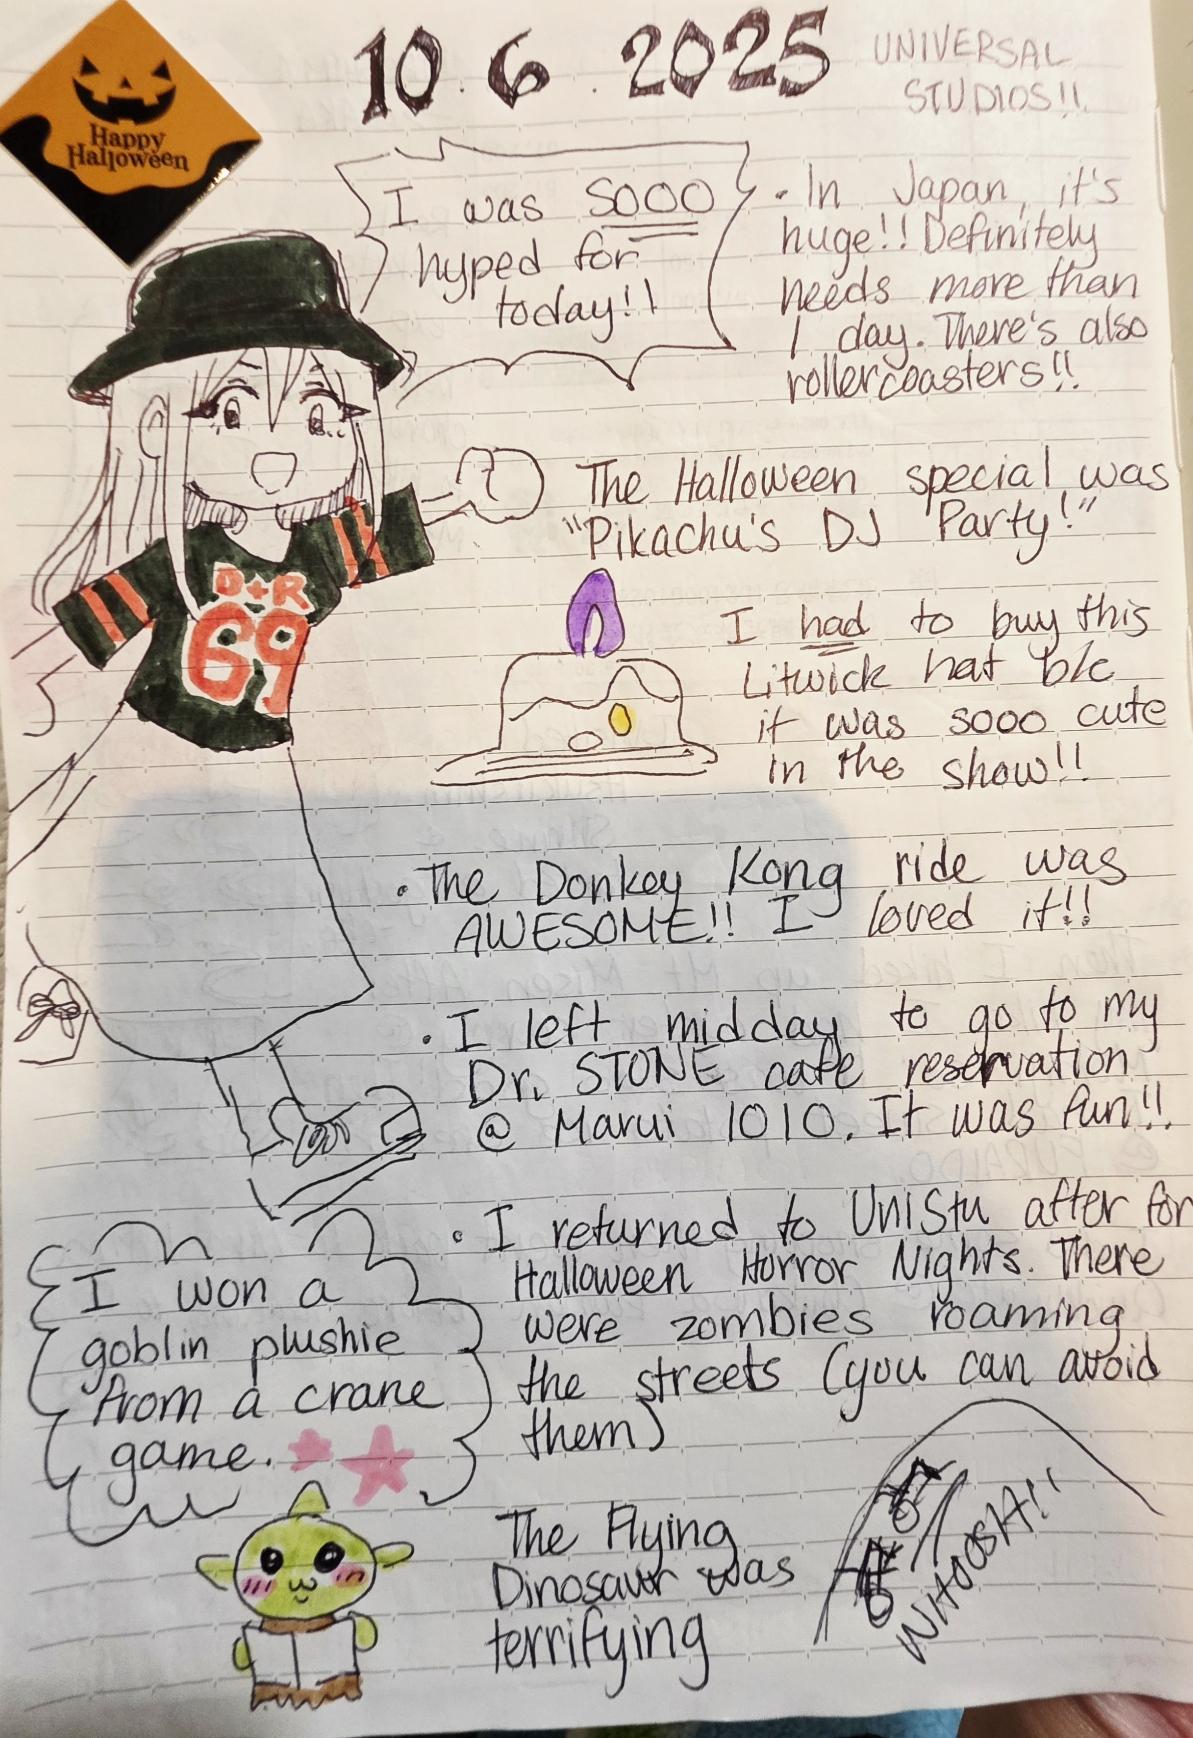 Happy
Halloween
10.6.2025
UNIVERSAL
STUDIOS!!
I was SOOO
hyped for
today!!
• In Japan, it's
huge!! Definitely
needs more than
1 day. There's also
rollercoasters!!
D+R
69
The Halloween special was
"Pikachu's DJ Party!"
I had to buy this
Litwick hat b/c
it was sooo cute
in the show!!
• The Donkey Kong ride was
AWESOME!! I loved it!!
• I left midday to go to my
Dr. STONE cafe reservation
@ Marui 1010. It was fun!!
• I returned to UniStu after for
Halloween Horror Nights. There
were zombies roaming
the streets (you can avoid
them)
I won a
goblin plushie
from a crane
game.
The Flying
Dinosaur was
terrifying
WHOOSH!!